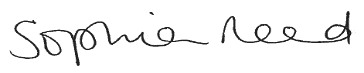 Sophie Reed